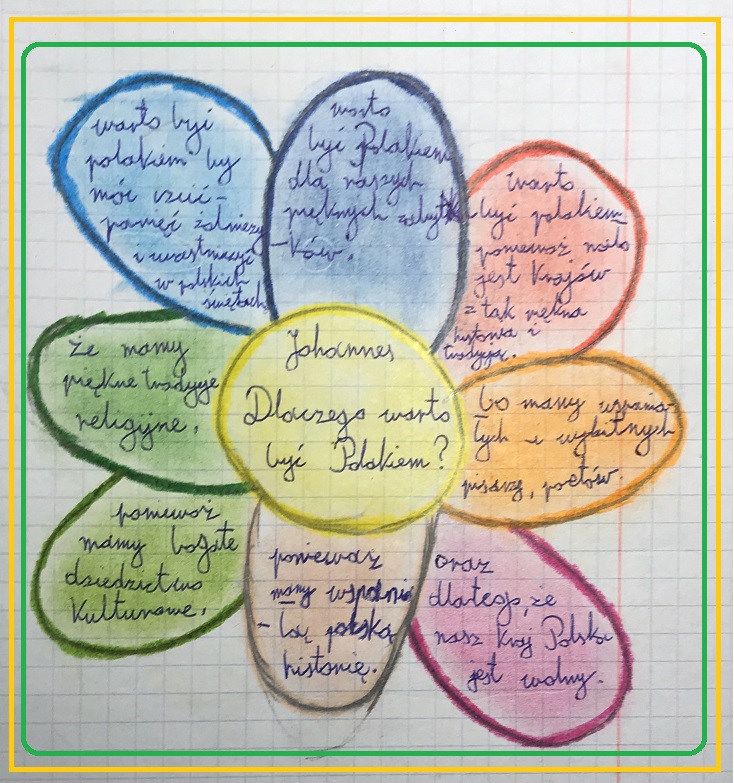 Johannes
Dlaczego warto
być Polakiem?
warto być
polakiem by
móc czcić
pamięć żołnierzy
i uczestniczyć
w polskich
świętach
warto
być Polakiem
dla naszych
pięknych zabyt
-ków.
Warto
być polakiem
ponieważ mało
jest Krajów
z tak piękną
historią i
tradycją.
bo mamy wspania-
łych i wybitnych
pisarzy, poetów.
oraz
dlatego, że
nasz Kraj Polska
jest wolny.
ponieważ
mamy wspania
-łą polską
historię.
ponieważ
mamy bogate
dziedzictwo
Kulturowe.
że mamy
piękne tradycje
religijne.